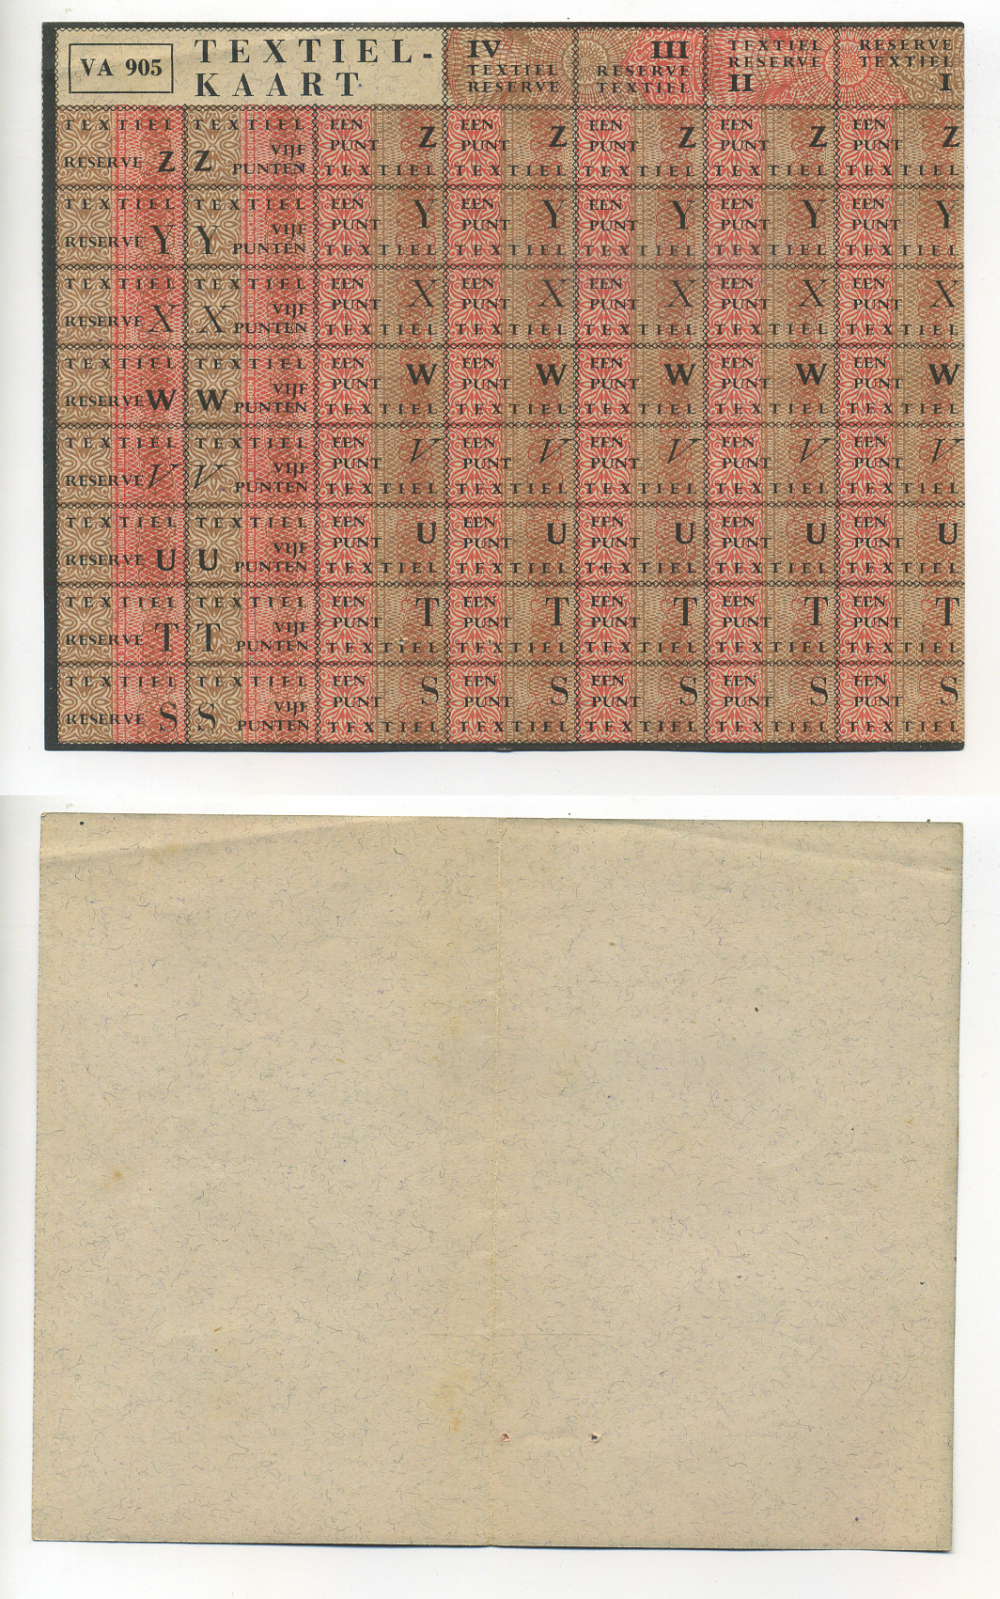 VA 905
TEXTIEL-
KAART
IV
TEXTIEL
RESERVE
III
RESERVE
TEXTIEL
TEXTIEL
RESERVE
II
RESERVE
TEXTIEL
I
TEXTIEL TEXTIEL EEN EEN EEN EEN EEN
VIJF PUNT Z PUNT Z PUNT Z PUNT Z PUNT Z
RESERVE Z Z PUNTEN TEXTIEL TEXTIEL TEXTIEL TEXTIEL TEXTIEL
TEXTIEL TEXTIEL EEN EEN EEN EEN EEN
VIJF PUNT Y PUNT Y PUNT Y PUNT Y PUNT Y
RESERVE Y Y PUNTEN TEXTIEL TEXTIEL TEXTIEL TEXTIEL TEXTIEL
TEXTIEL TEXTIEL EEN EEN EEN EEN EEN
VIJF PUNT X PUNT X PUNT X PUNT X PUNT X
RESERVE X X PUNTEN TEXTIEL TEXTIEL TEXTIEL TEXTIEL TEXTIEL
TEXTIEL TEXTIEL EEN EEN EEN EEN EEN
VIJF PUNT W PUNT W PUNT W PUNT W PUNT W
RESERVE W W PUNTEN TEXTIEL TEXTIEL TEXTIEL TEXTIEL TEXTIEL
TEXTIEL TEXTIEL EEN EEN EEN EEN EEN
VIJF PUNT V PUNT V PUNT V PUNT V PUNT V
RESERVE V V PUNTEN TEXTIEL TEXTIEL TEXTIEL TEXTIEL TEXTIEL
TEXTIEL TEXTIEL EEN EEN EEN EEN EEN
VIJF PUNT U PUNT U PUNT U PUNT U PUNT U
RESERVE U U PUNTEN TEXTIEL TEXTIEL TEXTIEL TEXTIEL TEXTIEL
TEXTIEL TEXTIEL EEN EEN EEN EEN EEN
VIJF PUNT T PUNT T PUNT T PUNT T PUNT T
RESERVE T T PUNTEN TEXTIEL TEXTIEL TEXTIEL TEXTIEL TEXTIEL
TEXTIEL TEXTIEL EEN EEN EEN EEN EEN
VIJF PUNT S PUNT S PUNT S PUNT S PUNT S
RESERVE S S PUNTEN TEXTIEL TEXTIEL TEXTIEL TEXTIEL TEXTIEL